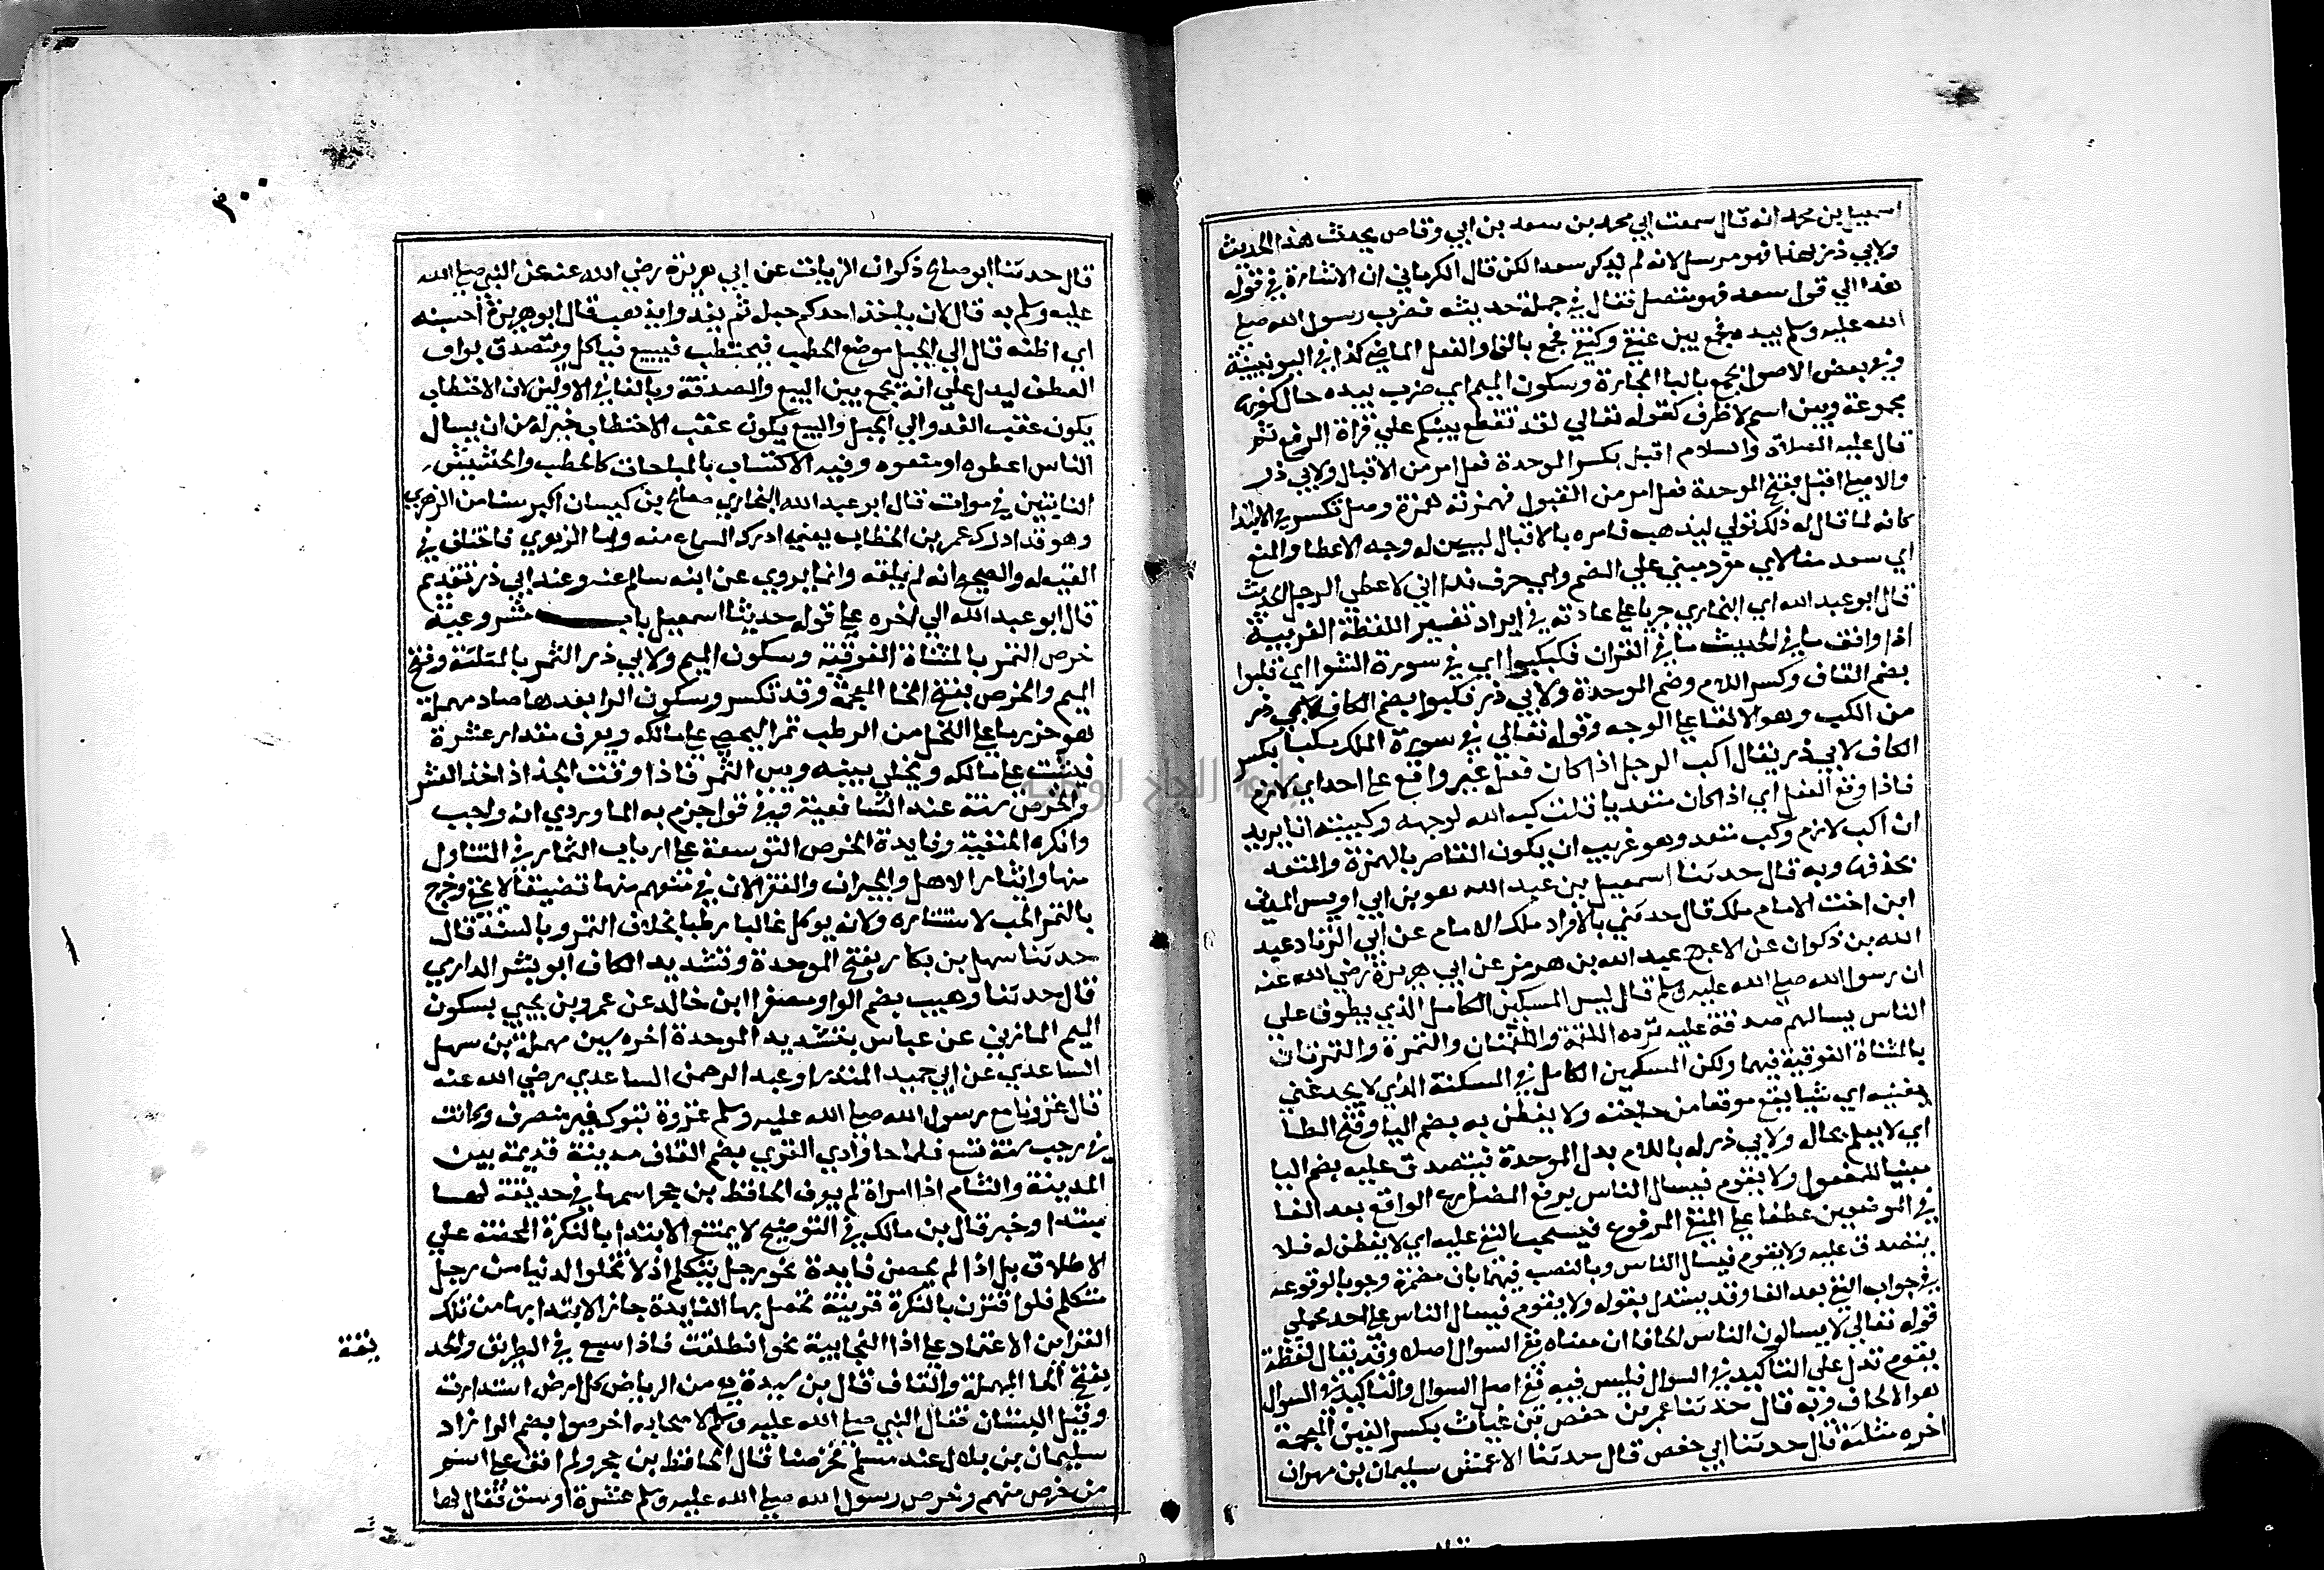 اسمعيل بن محمد انه قال سمعت ابي محمد بن سعد بن ابي وقاص يحدث هذا الحديث
ولابي ذر بهذا فهو مرسل لانه لم يذكر سعدا لكن قال الكرماني ان الاشارة في قوله
هذا الي قول سعد فهو متصل فقال في جملة حديثه فضرب رسول الله صلي
الله عليه وسلم بيده فجمع بين عنقي وكتفي فجمع بالفا والفعل الماضي كذا في اليونينية
وفي بعض الاصول يجمع بالبا الجارة وسكون الميم اي ضرب بيده حال كونها
مجموعة وبين اسم لا ظرف كقوله تعالي لقد تقطع بينكم علي قراة الرفع ثم
قال عليه الصلاة والسلام اقبل بكسر الموحدة فعل امر من الاقبال ولابي ذر
والاصيلي اقبل بفتح الموحدة فعل امر من القبول فهمزته همزة وصل تكسر في الابتدا
كانه لما قال له ذلك تولي ليذهب فامره بالاقبال ليبين له وجه الاعطا والمنع
اي سعد منادي مفرد مبني علي الضم واي حرف ندا اني لاعطي الرجل الحديث
قال ابو عبد الله اي البخاري جريا علي عادته في ايراد تفسير اللفظة الغريبة
اذا وافق ما في الحديث ما في القران فكبكبوا اي في سورة الشعرا اي قلبوا
بضم القاف وكسر اللام وضم الموحدة ولابي ذر فكبوا بضم الكاف
من الكب وهو الالقا علي الوجه وقوله تعالي في سورة الملك مكبا بكسر
الكاف لابي ذر يقال اكب الرجل اذا كان فعله غير واقع علي احد اي لازم
فاذا وقع الفعل اي اذا كان متعديا قلت كبه الله لوجهه وكببته انا يريد
ان اكب لازم وكب متعد وهو غريب ان يكون القاصر بالهمزة والمتعد
بحذفها وبه قال حدثنا اسمعيل بن عبد الله هو بن ابي اويس المدني
ابن اخت الامام ملك قال حدثني بالافراد ملك الامام عن ابي الزناد عبد
الله بن ذكوان عن الاعرج عبد الله بن هرمز عن ابي هريرة رضي الله عنه
ان رسول الله صلي الله عليه وسلم قال ليس المسكين الكامل الذي يطوف علي
الناس يسالهم صدقة عليه ترده اللقمة واللقمتان والتمرة والتمرتان
بالمثناة الفوقية فيهما ولكن المسكين الكامل في المسكنة الذي لا يجد غني
يغنيه اي شيا يقع موقعا من حاجته ولا يفطن به بضم اليا وفتح الطا
اي لا يعلم بحاله ولابي ذر له باللام بدل الموحدة فيتصدق عليه بضم اليا
مبنيا للمفعول ولا يقوم فيسال الناس برفع المضارع الواقع بعد الفا
في الموضعين عطفا علي المنفي المرفوع فينسحب النفي عليه اي لا يفطن له فلا
يتصدق عليه ولا يقوم فيسال الناس وبالنصب فيهما بان مضمرة وجوبا لوقوعه
في جواب النفي بعد الفا وقد يستدل بقوله ولا يقوم فيسال الناس علي احد محملي
قوله تعالي لا يسالون الناس الحافا ان معناه نفي السوال اصلا وقد يقال لفظة
يقوم تدل علي التاكيد في السوال فليس فيه نفي اصل السوال والتاكيد في السوال
هو الالحاف وبه قال حدثنا عمر بن حفص بن غياث بكسر الغين المعجمة
اخره مثلثة قال حدثنا ابي حفص قال حدثنا الاعمش سليمان بن مهران
٣٠٠
قال حدثنا ابو صالح ذكوان الزيات عن ابي هريرة رضي الله عنه عن النبي صلي الله
عليه وسلم به قال لان ياخذ احدكم حبله ثم يغدو اي يذهب قال ابو هريرة احسبه
اي اظنه قال الي الجبل موضع الحطب فيحتطب فيبيع فياكل ويتصدق بواو
العطف ليدل علي انه يجمع بين البيع والصدقة وبالفا في الاولين لان الاحتطاب
يكون عقب الغدو الي الجبل والبيع يكون عقب الاحتطاب خير له من ان يسال
الناس اعطوه او منعوه وفيه الاكتساب بالمباحات كالحطب والحشيش
النابتين في موات قال ابو عبد الله البخاري صالح بن كيسان اكبر سنا من الزهري
وهو قد ادرك عمر بن الخطاب يعني ادرك السماع منه واما الزهري فاختلف في
لقيه له والصحيح انه لم يلقه وانما يروي عن ابنه سالم عنه وعند ابي ذر تقديم
قال ابو عبد الله الي اخره علي قوله حديثا اسمعيل باب مشروعية
خرص التمر بالمثناة الفوقية وسكون الميم ولابي ذر الثمر بالمثلثة وفتح
الميم والخرص بفتح الخا المعجمة وقد تكسر وسكون الرا بعدها صاد مهملة
هو حزر ما علي النخل من الرطب تمرا ليحصي علي مالكه ويعرف مقدار عشره
فيثبت علي مالكه ويخلي بينه وبين الثمر فاذا وقت الجذاذ اخذ العشر
والخرص سنة عند الشافعية وفي قول جزم به الماوردي انه واجب
وانكره الحنفية وفايدة الخرص التوسعة علي ارباب الثمار في التناول
منها وايثار الاهل والجيران والفقرا لان في منعهم منها تضييقا لا يخفي وخرج
بالتمر الحب لاستتاره ولانه يوكل غالبا رطبا بخلاف التمر وبالسند قال
حدثنا سهل بن بكار بفتح الموحدة وتشديد الكاف ابو بشر الداري
قال حدثنا وهيب بضم الواو مصغرا ابن خالد عن عمرو بن يحيي بسكون
الميم المازني عن عباس بتشديد الموحدة اخره سين مهملة بن سهل
الساعدي عن ابي حميد المنذر او عبد الرحمن الساعدي رضي الله عنه
قال غزونا مع رسول الله صلي الله عليه وسلم غزوة تبوك غير منصرف وكانت
في رجب سنة تسع فلما جا وادي القري بضم القاف مدينة قديمة بين
المدينة والشام اذا امراة لم يعرف الحافظ بن حجر اسمها في حديقة لها
مبتدا وخبر قال بن مالك في التوضيح لا يمتنع الابتدا بالنكرة المحضة علي
الاطلاق بل اذا لم يحصل فايدة نحو رجل يتكلم اذ لا تخلو الدنيا من رجل
متكلم فلو اقترن بالنكرة قرينة تحصل بها الفايدة جاز الابتدا بها من تلك
القراين الاعتماد علي اذا الفجايية نحو انطلقت فاذا سبع في الطريق والحد
يقة
بفتح الحا المهملة والقاف قال بن سيدة هي من الرياض كل ارض استدارت
وقيل البستان فقال النبي صلي الله عليه وسلم لاصحابه اخرصوا بضم الرا زاد
سليمان بن بلال عند مسلم فخرصنا قال الحافظ بن حجر ولم اقف علي اسم
من خرص منهم وخرص رسول الله صلي الله عليه وسلم عشرة اوسق فقال لها